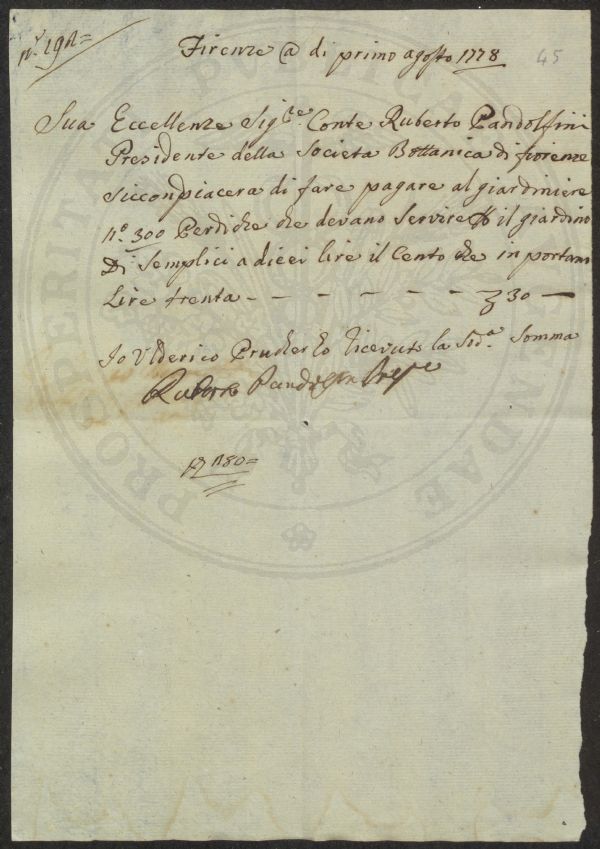 Firenze @ di primo agosto 1778
45
Sua Eccellenze Sig.re Conte Ruberto Pandolfini
Presidente della Societa Bottanica di fiorenze
Siccondpiacera di fare pagare al giardiniere
n.o 300 Perdiche che devano Servire il giardino
Di Semplici a dieci lire il Cento che in portano
Lire trenta - - - - - - 30 -
Io Ulderico Prucher ho Ricevuto la Sud.a Somma
Ruberto Pandolfini Pres.e
PROSPERITATI PUBLICAE AUGENDAE